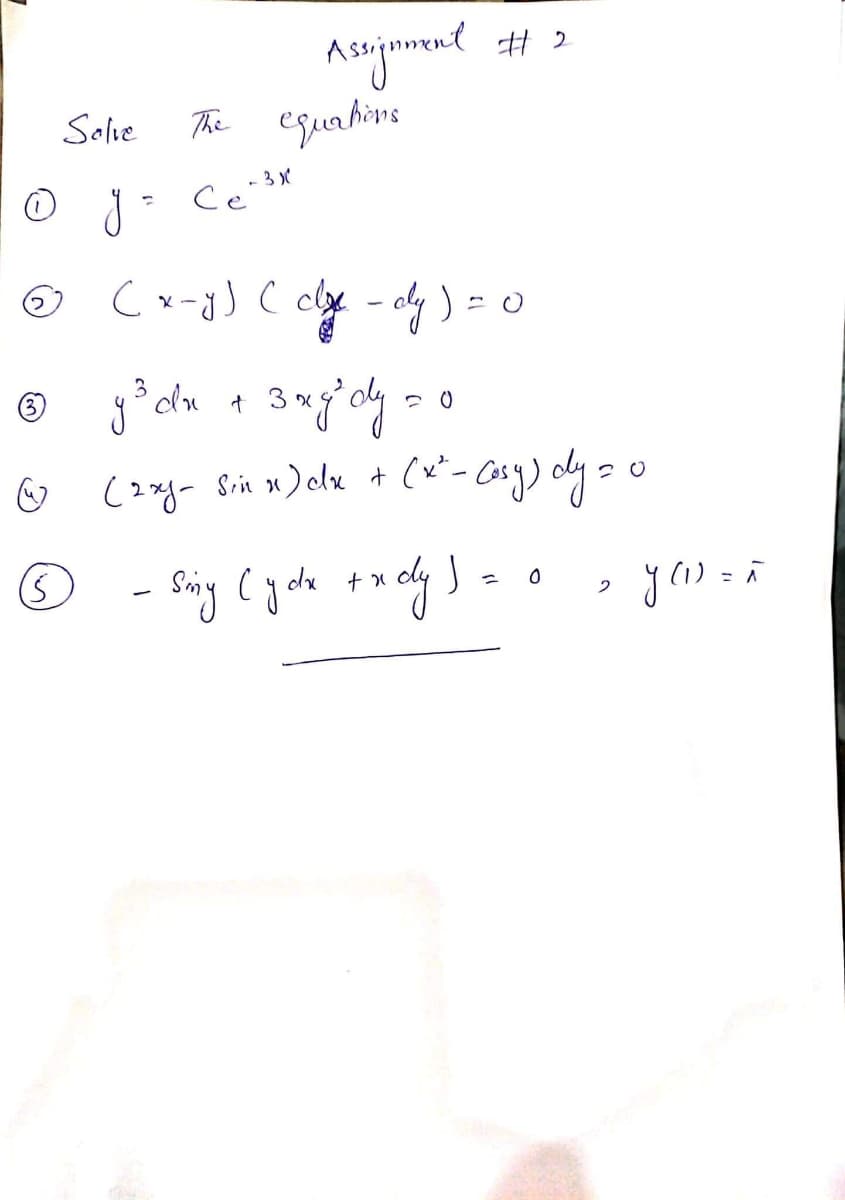 Assignment # 2
Solve The equations
① y = Ce⁻³ˣ
② (x-y) (dx - dy) = 0
③ y³dx + 3xy²dy = 0
④ (2xy - Sin x)dx + (x² - Cosy) dy = 0
⑤ - Siny (y dx + x dy) = 0 , y(1) = π